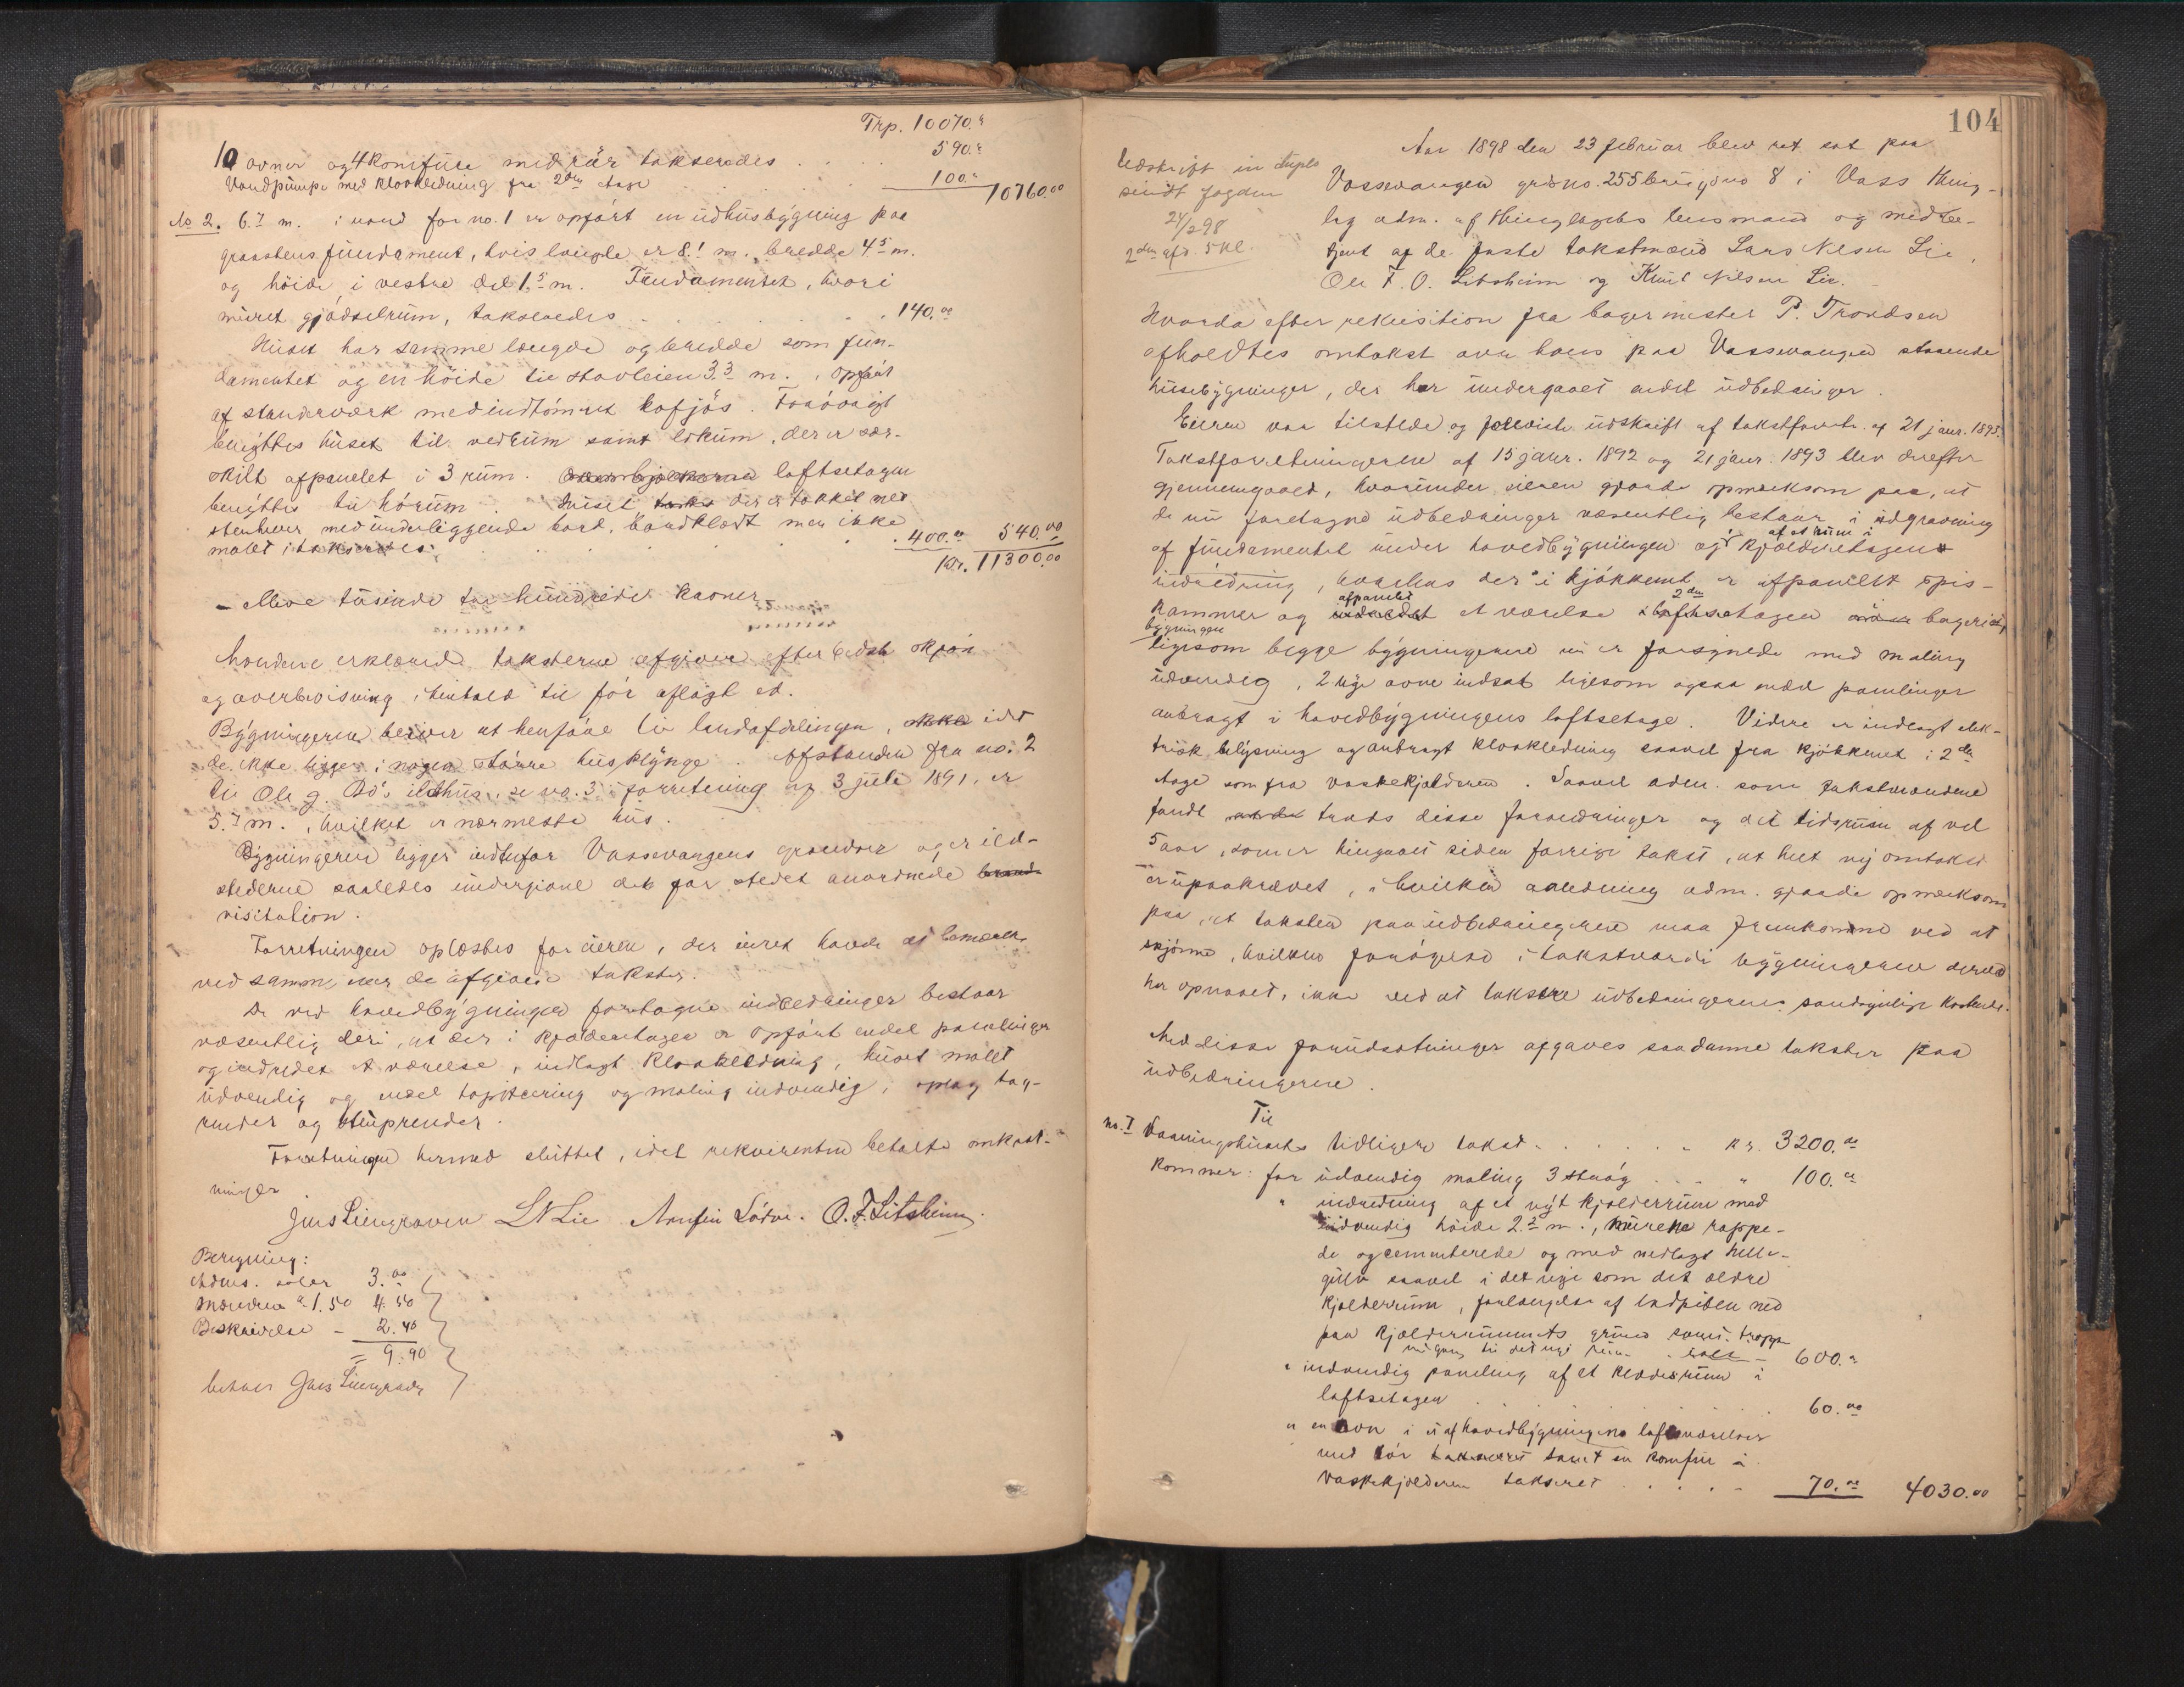 Trp. 10070."
10 ovner og 4 komfure med rör takseredes . . . 590."
Vandpumpe med kloakledning fra 2den etage . . . 100." 10760.00
No 2. 6.7 m. i nord for no. 1 er opfört en udhusbygning paa
graastens fundament, hvis længde er 8.1 m., bredde 4.5 m.
og höide i vestre del 1.5 m. Fundamentet, hvori
muret gjödselrum, takseredes . . . 140.00
Huset har samme længde og bredde som fun-
damentet og en höide til stavleien 3.3 m., opfört
af standerværk med indtömret kofjös. Forövrigt
benyttes huset til vedrum samt lokum, der er sær-
skilt afpanelet i 3 rum. loftsetagen
benyttes til hörum. Huset, der er tækket med
stenhever med underliggende bord, bordklædt men ikke
malet takseredes . . . 400.00 540.00
Kr. 11300.00
- elleve tusinde tre hundrede kroner -
Mændene erklærede taksterne afgivne efter bedste skjön
og overbevisning i henhold til för aflagt ed.
Bygningerne bliver at henföre til landafdelingen, idet
de ikke ligger i nogen större husklynge. Afstanden fra no. 2
til Ole G. Bö's ildhus, se no. 3 i forretning af 3 juli 1891, er
5.7 m., hvilket er nærmeste hus.
Bygningerne ligger indenfor Vossevangens grændser og er ild-
stederne saaledes undergivne den for stedet anordnede brand-
visitation.
Forretningen oplæstes for eieren, der intet havde at bemærke
ved samme, over de afgivne takster.
De ved hovedbygningen foretagne indredninger bestaar
væsentlig deri, at der i kjælderetagen er opfört endel panelinger
og indredet et værelse, indlagt kloakledning, huset malet
udvendig og endel tapitsering og maling indvendig, oplag tag-
render og
Forretningen hermed sluttet, idet rekvirenten betalte omkost-
ninger
Jens Liengraven L N Lie Arnfin Lödve. O. F. Litsheim.
Beregning:
Adms. salær 3.00
Mændene à 1.50 4.50
Beskrivelse - 2.40
= 9.90
betalt Jens Liengraven
104
Udskrift in duplo
sendt fogden
24/2 98
2den afd. 5 kl.
Aar 1898 den 23 februar blev ret sat paa
Vossevangen grds no. 255 brugs no 8 i Voss thing-
lag adm. af thinglagets lensmand og medbe-
tjent af de faste takstmænd Lars Nilsen Lie,
Ole F. O. Litsheim og Knut Nilsen Lie.
Hvorda efter rekvisition fra bagermester P. Trondsen
afholdtes omtakst over hans paa Vossevangen staaende
husebygninger, der har undergaaet endel udbedringer.
Eieren var tilstede og foreviste udskrift af takstforretn. af 21 janr. 1893.
Takstforretningerne af 15 janr. 1892 og 21 janr. 1893 blev derefter
gjennemgaaet, hvorunder eieren gjorde opmærksom paa, at
de nu foretagne udbedringer væsentlig bestaar i udgravning
af fundamentet under hovedbygningen og af et rum i kjælderetagens
indredning, hvorhos der i kjökkenet er afpanelet spis-
kammer og afpanelet et værelse i 2den loftsetagen bageri-
bygningen
ligesom begge bygningerne nu er forsynede med maling
udvendig, 2 nye ovne indsat ligesom ogsaa endel panelinger
anbragt i hovedbygningens loftsetage. Videre er indlagt elek-
trisk belysning og anbragt kloakledning saavel fra kjökkenet i 2den
etage som fra vaskekjælderen. Saavel adm. som takstmændene
fandt trods disse forandringer og det tidsrum af vel
5 aar, som er hengaaet siden forrige takst, at helt ny omtakst
er upaakrævet, i hvilken anledning adm. gjorde opmærksom
paa, at taksten paa udbedringerne maa fremkomme ved at
skjönne, hvilken forögelse i takstværdi bygningerne derved
har opnaaet, ikke ved at taksere udbedringernes sandsynlige kostende.
Med disse forudsætninger afgaves saadanne takster paa
udbedringerne.
Til
no. 1 Vaaningshusets tidligere takst . . . kr. 3200.00
kommer: for udvendig maling 3 ströг . . . " 100.00
" indredning af et nyt kjælderrum med
indvendig höide 2.2 m., murene rappe-
de og cementerede og med nedlagt helle-
gulv saavel i det nye som det ældre
kjælderrum, forlængelse af ildpiben ned
paa kjælderrummets grund samt trappe
nedgang til det nye rum . . . 600."
" indvendig paneling af et klædesrum i
loftsetagen . . . 60.00
" en ovn i et af hovedbygningens loftsværelser
med rör takseret samt en komfur i
vaskekjælderen takseret . . . 70.00 4030.00